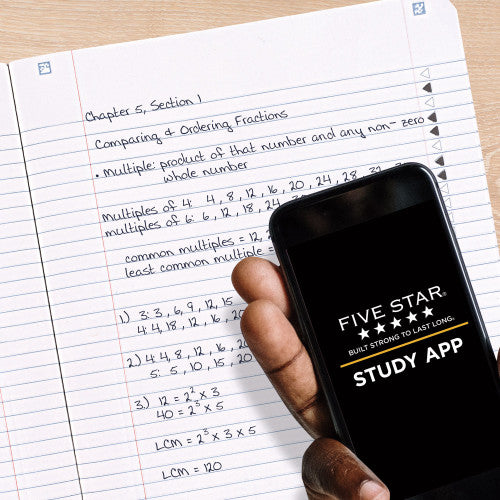 Chapter 5, Section 1
Comparing & Ordering Fractions
• multiple: product of that number and any non-zero
whole number
multiples of 4: 4, 8, 12, 16, 20, 24, 28, 32,
multiples of 6: 6, 12, 18, 24,
common multiples = 12,
least common multiple =
1.) 3: 3, 6, 9, 12, 15
4: 4, 18, 12, 16, 20
2.) 4: 4, 8, 12, 16, 20
5: 5, 10, 15, 20
3.) 12 = 2² x 3
40 = 2³ x 5
LCM = 2³ x 3 x 5
LCM = 120
FIVE STAR®
BUILT STRONG TO LAST LONG.
STUDY APP